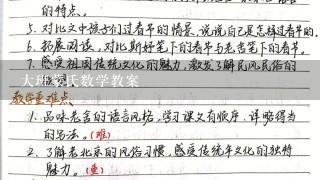 的特点。
5. 对比文中孩子们过春节的情景,说说自己是怎样过春节的。
6. 拓展阅读,对比斯好笔下的春节与老舍笔下的春节。
7. 感受祖国传统文化的魅力,激发了解民风民俗的
大班蒙氏数学教案
教学重难点
1. 品味老舍的语言风格,学习课文有顺序、详略得当
的写法。(难)
2. 了解老北京的风俗习惯,感受传统年文化的独特
魅力。(重)